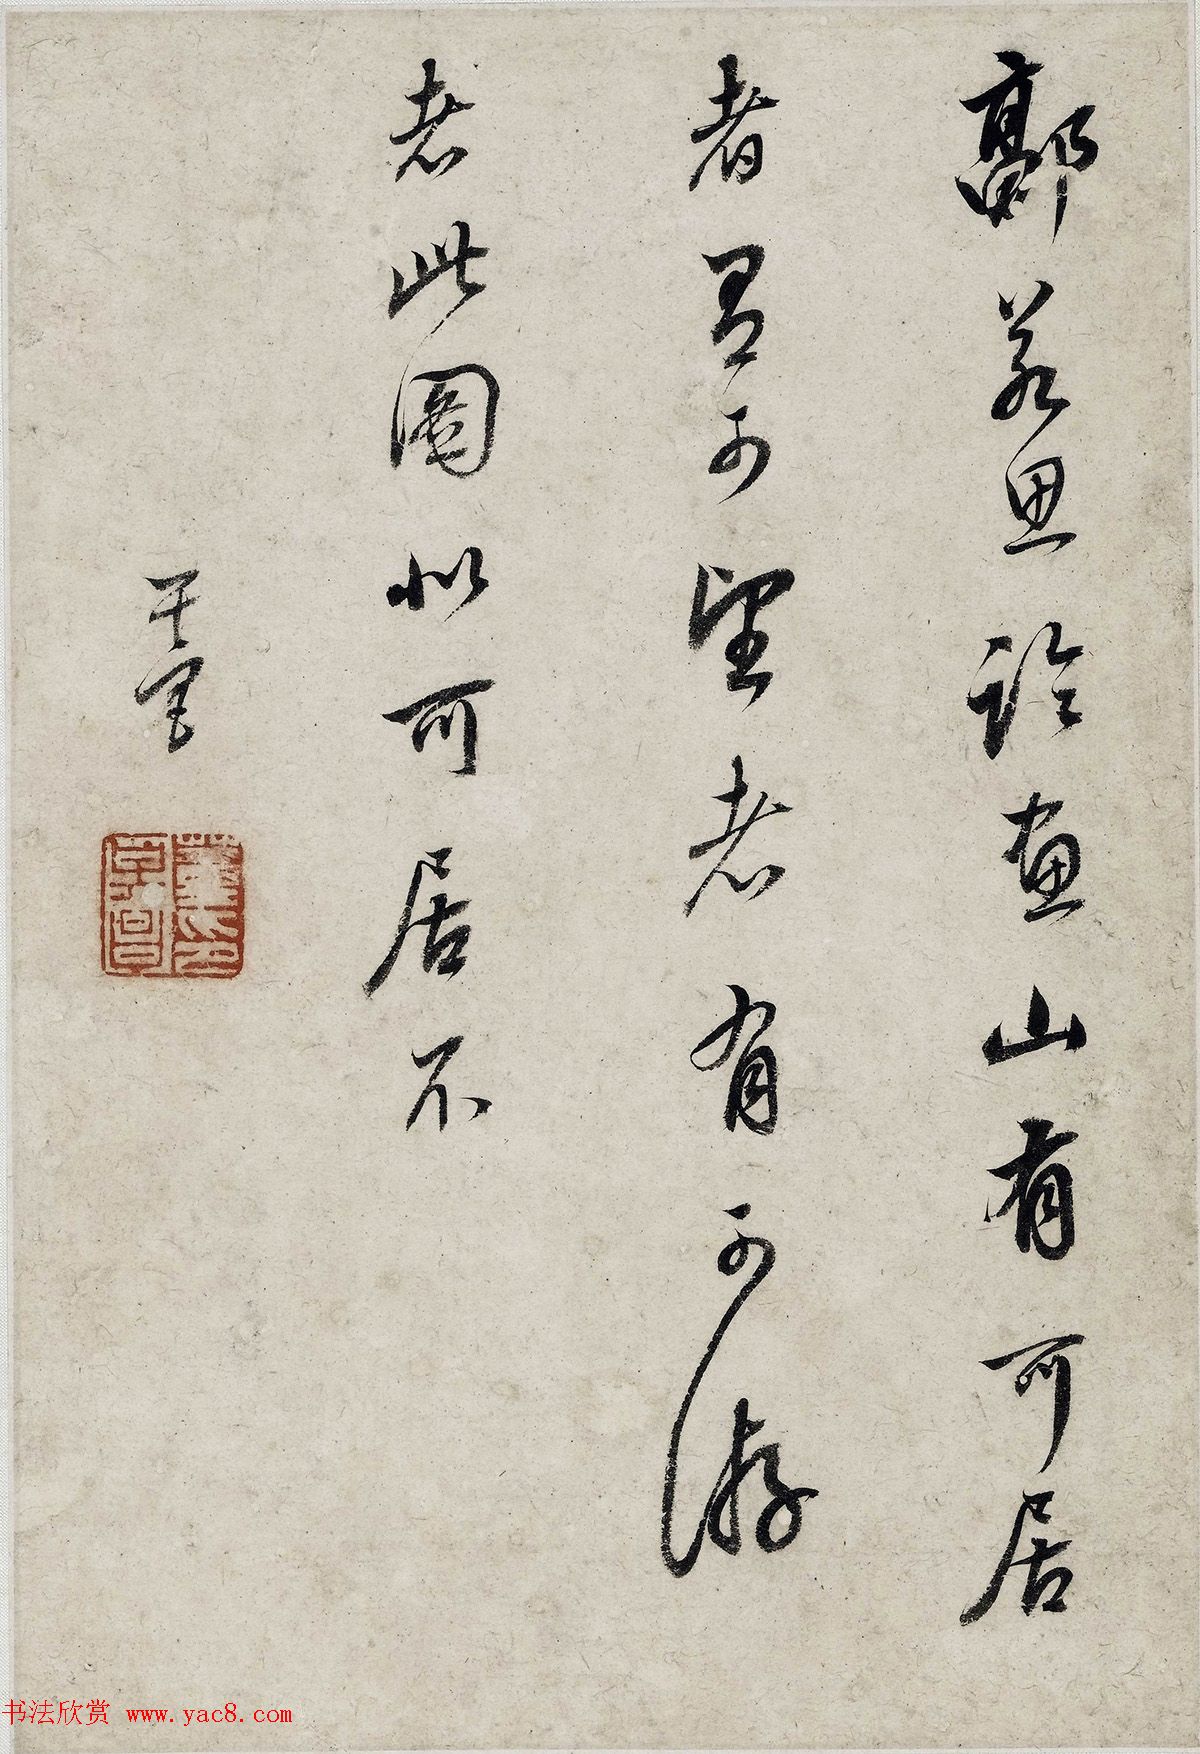 郭若思論畫山有可居
者有可望者有可游
者此圖似可居不
玄宰
董其昌
书法欣赏 www.yac8.com